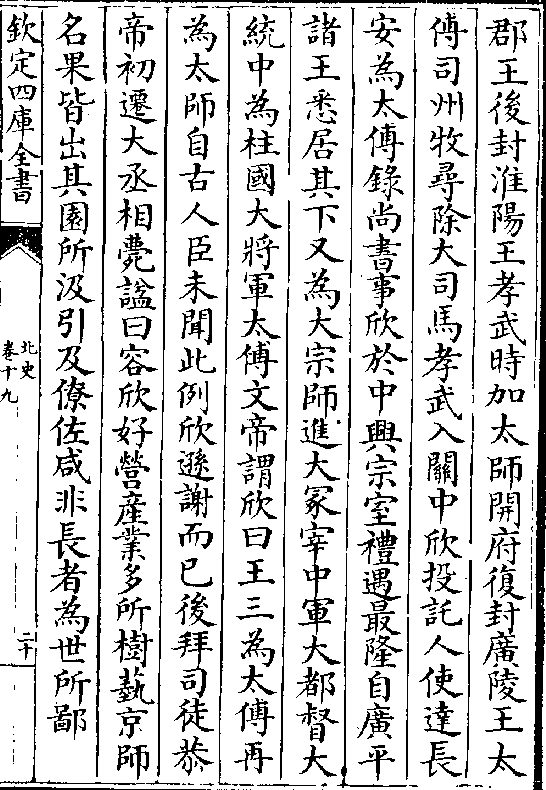 郡王後封淮陽王孝武時加太師開府復封廣陵王太
傅司州牧尋除大司馬孝武入關中欣投託人使達長
安為太傅錄尚書事欣於中興宗室禮遇最隆自廣平
諸王悉居其下又為大宗師進大冢宰中軍大都督大
統中為柱國大將軍太傅文帝謂欣曰王三為太傅再
為太師自古人臣未聞此例欣遜謝而已後拜司徒恭
帝初遷大丞相薨諡曰容欣好營產業多所樹藝京師
名果皆出其園所汲引及僚佐咸非長者為世所鄙
欽定四庫全書
北史
卷十九
二十